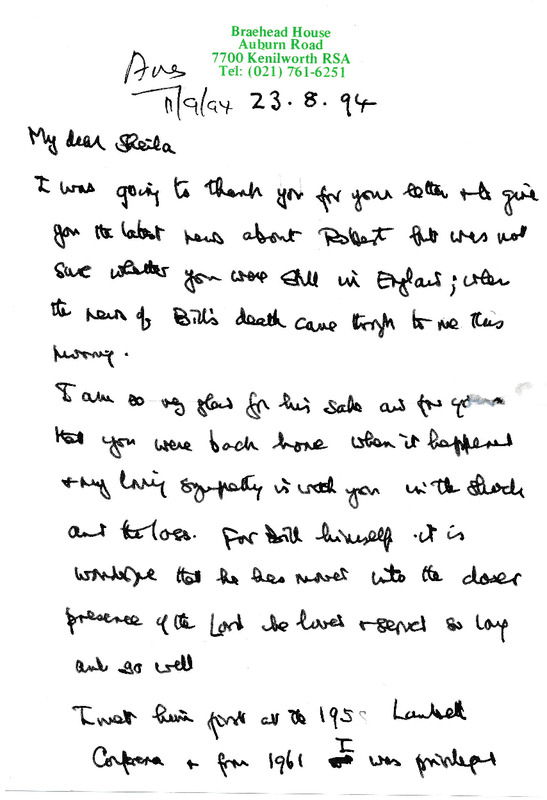 Braehead House
Auburn Road
7700 Kenilworth RSA
Tel: (021) 761-6251
Ans
11/9/94 23.8.94
My dear Sheila
I was going to thank you for your letter & to give
you the latest news about Robert but was not
sure whether you were still in England; when
the news of Bill's death came through to me this
morning.
I am so very glad for his sake and for yours
that you were back home when it happened
& my loving sympathy is with you in the shock
and the loss. For Bill himself it is
wonderful that he has moved into the closer
presence of the Lord he loved & served so long
and so well
I met him first at the 195 Lambeth
Conference & from 1961 I was privileged